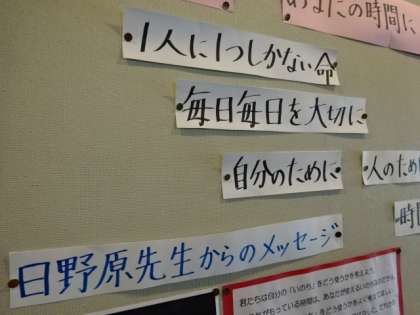 あなたの時間に
1人に1つしかない命
毎日毎日を大切に
自分のために
人のため
時間
日野原先生からのメッセージ
君たちは自分の「いのち」をどう使うかを考えよう。